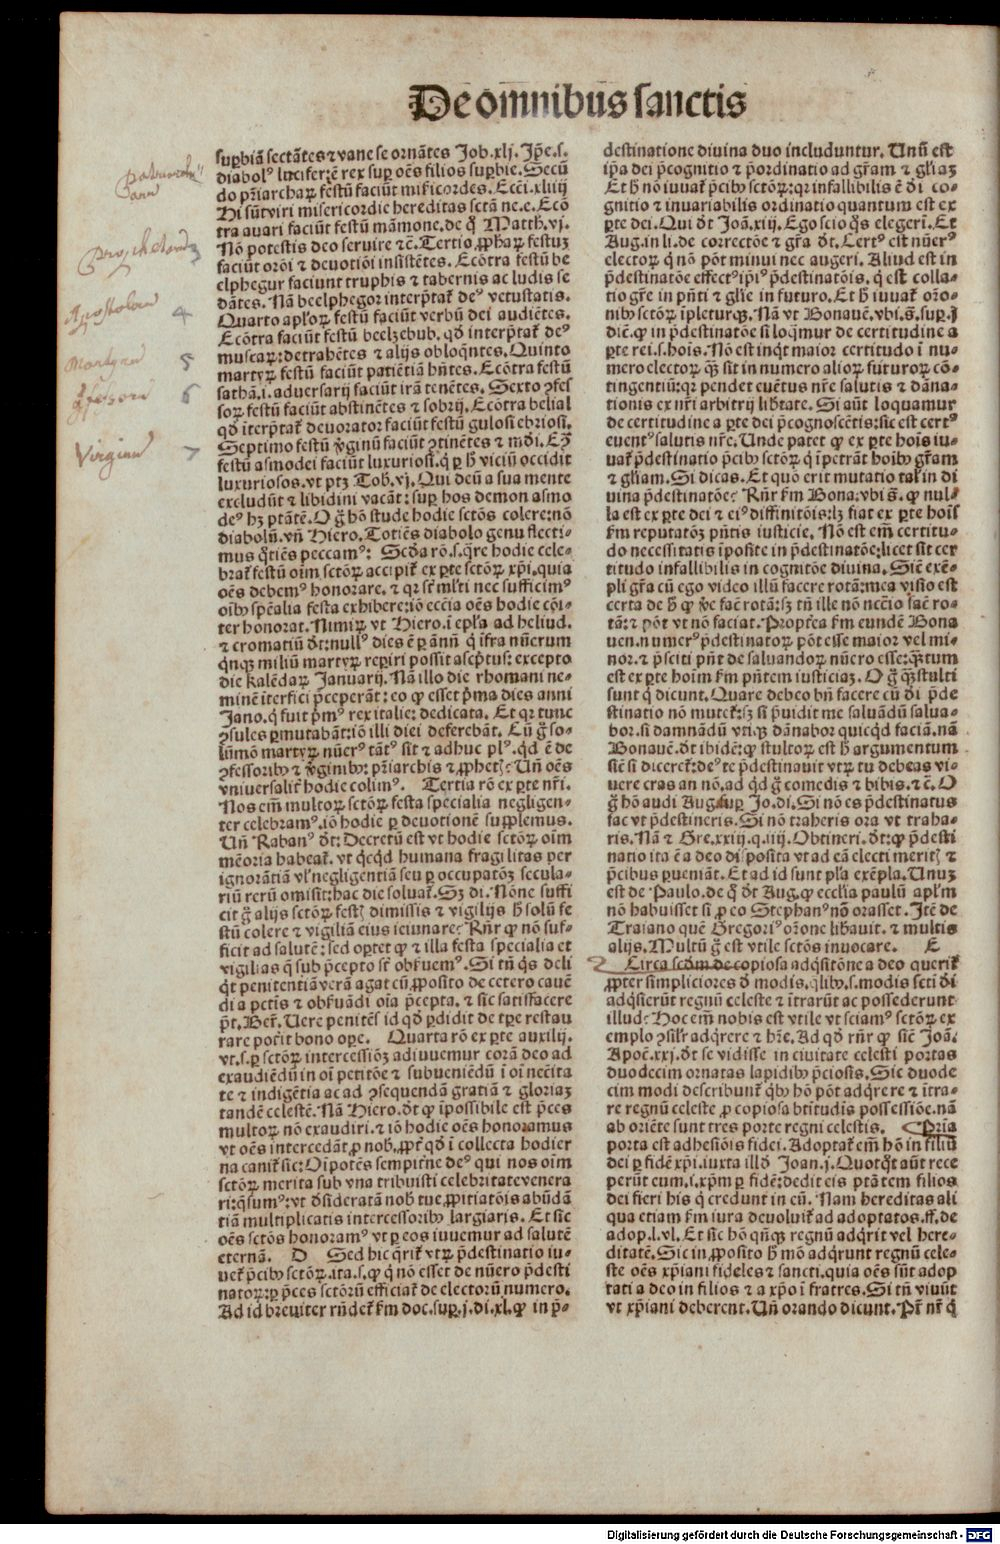 De om̄nibus sanctis
patriarcha⁊
Prophetarū 3
Apostolorū 4
Martyrū 5
ꝯfessorū 6
Virginū 7
suꝑbiā sectātes ⁊ vane se ornātes Job. xlj. Ip̄e. s.
diabolꝰ lucifer: ē rex suꝑ oēs filios suꝑbie. Secū
do p̄riarchaꝝ festū faciūt mīcordes. Ecci. xliiij
Hi sūt viri misericordie hereditas sctā nc. e. Ecō
tra auari faciūt festū māmone. de ꝙ̄ Matth. vj.
Nō potestis deo seruire ⁊c̄. Tertio ꝓphaꝝ festuꝫ
faciūt orōi ⁊ deuotiōi insistētes. Ecōtra festū be
elphegur faciunt truphis ⁊ tabernis ac ludis se
dātes. Nā beelphegoꝛ interp̄tat̄ deꝰ vetustatis.
Quarto aplōꝝ festū faciūt verbū dei audiētes.
Ecōtra faciūt festū beelzebub. qđ interp̄tat̄ deꝰ
muscaꝝ: detrahētes ⁊ alijs obloq̄ntes. Quinto
martyꝝ festū faciūt patiētiā hn̄tes. Ecōtra festū
sathā. i. aduersarij faciūt irā tenētes. Sexto ꝯfes
soꝝ festū faciūt abstinētes ⁊ sobrij. Ecōtra belial
qđ iterp̄tat̄ deuorator faciūt festū gulosi ebriosi.
Septimo festū v̄ginū faciūt ꝯtinētes ⁊ mūdi. Ecō
festū asmodei faciūt luxuriosi. q̄ ꝑ h̄ viciū occidit
luxuriosos. vt ptꝫ Tob. vj. Qui deū a sua mente
excludūt ⁊ libidini vacāt: suꝑ hos demon asmo
deꝰ hꝫ ptātē. O ḡ hō stude hodie sctōs colere: nō
diabolū. vn̄ Hiero. Totiēs diabolo genu flecti-
mus q̄tiēs peccamꝰ: Scđa rō. s. q̄re hodie cele-
brat̄ festū oīm sctōꝝ accipit̄ ex ꝑte sctōꝝ xp̄i. quia
oēs debemꝰ honorare. ⁊ qꝛ st̄ ml̄ti nec sufficimꝰ
oībꝰ sp̄ealia festa exhibere: iō ecc̄ia oēs hodie cōi-
ter honorat. Nimiꝝ vt Hiero. ī epl̄a ad heliud.
⁊ cromatiū d̄t: nullꝰ dies ē ꝑ annū q̄ īfra nūerum
q̄nqꝫ miliū martyꝝ reꝑiri possit ascp̄tus: excepto
die kalēdaꝝ Januarij. Nā illo die rhomani ne-
minē īterfici p̄ceperāt: eo ꝙ esset p̄ma dies anni
Jano. q̄ fuit p̄mꝰ rex italie: dedicata. Et qꝛ tunc
ꝯsules ꝑmutabāt: iō illi diei deferebāt. Cū ḡ so-
lūmō martyꝝ nūerꝰ tātꝰ sit ⁊ adhuc plꝰ. qd̄ ē de
ꝯfessoribꝰ ⁊ v̄ginibꝰ: p̄riarchis ⁊ ꝓphetꝭ: Un̄ oēs
vniuersalit̄ hodie colimꝰ. Tertia rō ex ꝑte nr̄i.
Nos em̄ multoꝝ sctōꝝ festa specialia negligen-
ter celebramꝰ. iō hodie ꝑ deuotionē supplemus.
Un̄ Rabanꝰ d̄t: Decretū est vt hodie sctōꝝ oīm
mēoria habeat̄. vt q̄cqd̄ humana fragilitas per
ignorātiā vl̓ negligentiā seu ꝑ occupatōꝫ secula-
riū rerū omisit: hac die soluat̄. Sꝫ di. Nōne suffi
cit ḡ alijs sctōꝝ festꝭ dimissis ⁊ vigilijs h̄ solū fe
stū colere ⁊ vigiliā eius ieiunare: Rn̄r ꝙ nō suf-
ficit ad salutē: sed oꝑtet ꝙ ⁊ illa festa specialia et
vigilias q̄ sub p̄cepto st̄ obs̄uemꝰ. Si tn̄ q̄s deli
q̄t penitentiā verā agat cū ꝓposito de cetero cauē
di a pctīs ⁊ obs̄uādi oīa p̄cepta. ⁊ sic satisfacere
p̄t. Ber̄. Uere penitēs id qđ ꝑdidit de tꝑe restau
rare pot̄it bono oꝑe. Quarta rō ex ꝑte auxilij.
vt. s. ꝑ sctōꝝ intercessiōꝫ adiuuemur corā deo ad
exaudiēdū in oī petitōe ⁊ subueniēdū ī oī necc̄ita
te ⁊ indigētia ac ad ꝯsequendā gratiā ⁊ gloriaꝫ
tandē celestē. Nā Hiero. d̄t ꝙ īpossibile est p̄ces
multoꝝ nō exaudiri. ⁊ iō hodie oēs honoramus
vt oēs intercedāt ꝓ nob̄. ꝓpt̄ qđ ī collecta hodier
na canit̄ sic: Oīpotēs sempit̄ne deꝰ qui nos oīm
sctōꝝ merita sub vna tribuisti celebritate venera
ri: q̄sumꝰ: vt d̄sideratā nob̄ tue ꝓpitiatōis abūdā
tiā multiplicatis intercessoribꝰ largiaris. Et sic
oēs sctōs honoramꝰ vt ꝑ eos iuuemur ad salutē
eternā. D Sed hic q̄rit̄ vtꝝ p̄destinatio iu-
uet̄ p̄cibꝰ sctōꝝ. ita. s. ꝙ q̄ nō esset de nūero p̄desti
natoꝝ: ꝑ p̄ces sctōrū efficiat̄ de electorū numero.
Ad id breuiter rn̄det̄ s̄m doc. suꝑ. j. di. xl. ꝙ in p̄-
destinatione diuina duo includuntur. Unū est
ip̄a dei p̄cognitio ⁊ p̄ordinatio ad gr̄am ⁊ gl̄iaꝫ
Et h̄ nō iuuat̄ p̄cibꝰ sctōꝝ: qꝛ infallibilis ē di co-
gnitio ⁊ inuariabilis ordinatio quantum est ex
ꝑte dei. Qui d̄t Joā. xiij. Ego scio q̄s elegeri. Et
Aug. in li. de correctōe ⁊ gr̄a d̄t. Certꝰ est nūerꝰ
electoꝝ q̄ nō pōt minui nec augeri. Aliud est in
p̄destinatōe effectꝰ ip̄iꝰ p̄destinatōis. q̄ est colla-
tio gr̄e in pn̄ti ⁊ gl̄ie in futuro. Et h̄ iuuat̄ orō-
nibꝰ sctōꝝ īpleturqꝫ. Nā vt Bonauē. vbi. s̄. suꝑ. j
dic̄. ꝙ in p̄destinatōe si loq̄mur de certitudine a
ꝑte rei. s. hoīs. Nō est inq̄t maior certitudo ī nu-
mero electoꝝ qꝫ sit in numero alioꝝ futuroꝝ cō-
tingentiū: qꝛ pendet euētus nr̄e salutis ⁊ dāna-
tionis ex nr̄i arbitrij lib̄tate. Si aūt loquamur
de certitudine a ꝑte dei p̄cognoscētis: sic est certꝰ
euentꝰ salutis nr̄e. Unde patet ꝙ ex ꝑte hoīs iu-
uat̄ p̄destinatio p̄cibꝰ sctōꝝ q̄ īpetrāt hoībꝰ gr̄am
⁊ gl̄iam. Si dicas. Et quō erit mutatio tal̓ in di
uina p̄destinatōe: Rn̄r s̄m Bona. vbi s̄. ꝙ nul-
la est ex ꝑte dei ⁊ eiꝰ diffinitōis: lꝫ fiat ex ꝑte hoīs
s̄m reputatōꝫ pn̄tis iusticie. Nō est em̄ certitu-
do necessitatis īposite in p̄destinatōe: licet sit cer
titudo infallibilis in cognitōe diuina. Sic̄ exē-
pli gr̄a cū ego video illū facere rotā: mea visio est
certa de h̄ ꝙ v̄e fac̄ rotā: sꝫ tn̄ ille nō necc̄io fac̄ ro-
tā: ⁊ pōt vt nō faciat. Propt̄ea s̄m eundē Bona
uen. numerꝰ p̄destinatoꝝ pōt esse maior vel mi-
nor. ⁊ p̄sciti pn̄t de saluandoꝝ nūero esse: qꝫtum
est ex ꝑte hoīm s̄m pn̄tem iusticiaꝫ. O ḡ qꝫ stulti
sunt q̄ dicunt. Quare debeo bn̄ facere cū di p̄de
stinatio nō mutet̄: sꝫ si p̄uidit me saluādū salua-
bor. si damnādū vtiqꝫ dānabor quicqd̄ faciā. nā
Bonauē. d̄t ibidē: ꝙ stultoꝝ est h̄ argumentum
sic̄ si diceret̄: deꝰ te p̄destinauit vtꝝ tu debeas vi-
uere cras an nō. ad qd̄ ḡ comedis ⁊ bibis. ⁊c̄. O
ḡ hō audi Aug. suꝑ Jo. di. Si nō es p̄destinatus
fac vt p̄destineris. Si nō traheris ora vt traha-
ris. Nā ⁊ Gre. xxiij. q. iiij. Obtineri. d̄t: ꝙ p̄desti
natio ita ē a deo disposita vt ad eā electi meritꝭ ⁊
p̄cibus ꝑueniāt. Et ad id sunt pl̓a exēpla. Unuꝫ
est de Paulo. de q̄ d̄t Aug. ꝙ eccl̓ia paulū apl̓m
nō habuisset si ꝓ eo Stephanꝰ nō orasset. Itē de
Traiano quē Gregoriꝰ orōne lib̄auit. ⁊ multis
alijs. Multū ḡ est vtile sctōs inuocare. E
Circa scđm de copiosa adq̄sitōne a deo querit̄
ꝓpter simpliciores d̄ modis. q̄libꝰ. s. modis scti dī
adq̄sierūt regnū celeste ⁊ ītrarūt ac possederunt
illud: Hoc em̄ nobis est vtile vt sciamꝰ sctōꝝ ex
emplo ꝯsil̓r adq̄rere ⁊ hr̄e. Ad qđ rn̄r ꝙ sic̄ Joā.
Apoc̄. xxj. d̄t se vidisse in ciuitate celesti portas
duodecim ornatas lapidibꝰ p̄ciosis. Sic duode
cim modi describunt̄ q̄bꝰ hō pōt adq̄rere ⁊ ītra-
re regnū celeste ꝓ copiosa btītudīs possessiōe. nā
ab oriēte sunt tres porte regni celestis. ¶Pria
porta est adhesiōis fidei. Adoptat̄ em̄ hō in filiū
dei ꝑ fidē xp̄i. iuxta illđ Joan. j. Quotq̄t aūt rece
perūt eum. s. xp̄m ꝑ fidē: dedit eis ptātem filios
dei fieri his q̄ credunt in eū. Nam hereditas ali
qua etiam s̄m iura deuoluit̄ ad adoptatos. ff. de
adop. l. vl. Et sic hō qn̄qꝫ regnū adq̄rit vel here-
ditatē. Sic in ꝓposito h̄ mō adq̄runt regnū cele-
ste oēs xp̄iani fideles ⁊ sancti. quia oēs sūt adop
tati a deo in filios ⁊ a xp̄o ī fratres. Si tn̄ viuūt
vt xp̄iani deberent. Un̄ orando dicunt. Pr̄ nr̄ q̄
Digitalisierung gefördert durch die Deutsche Forschungsgemeinschaft - DFG